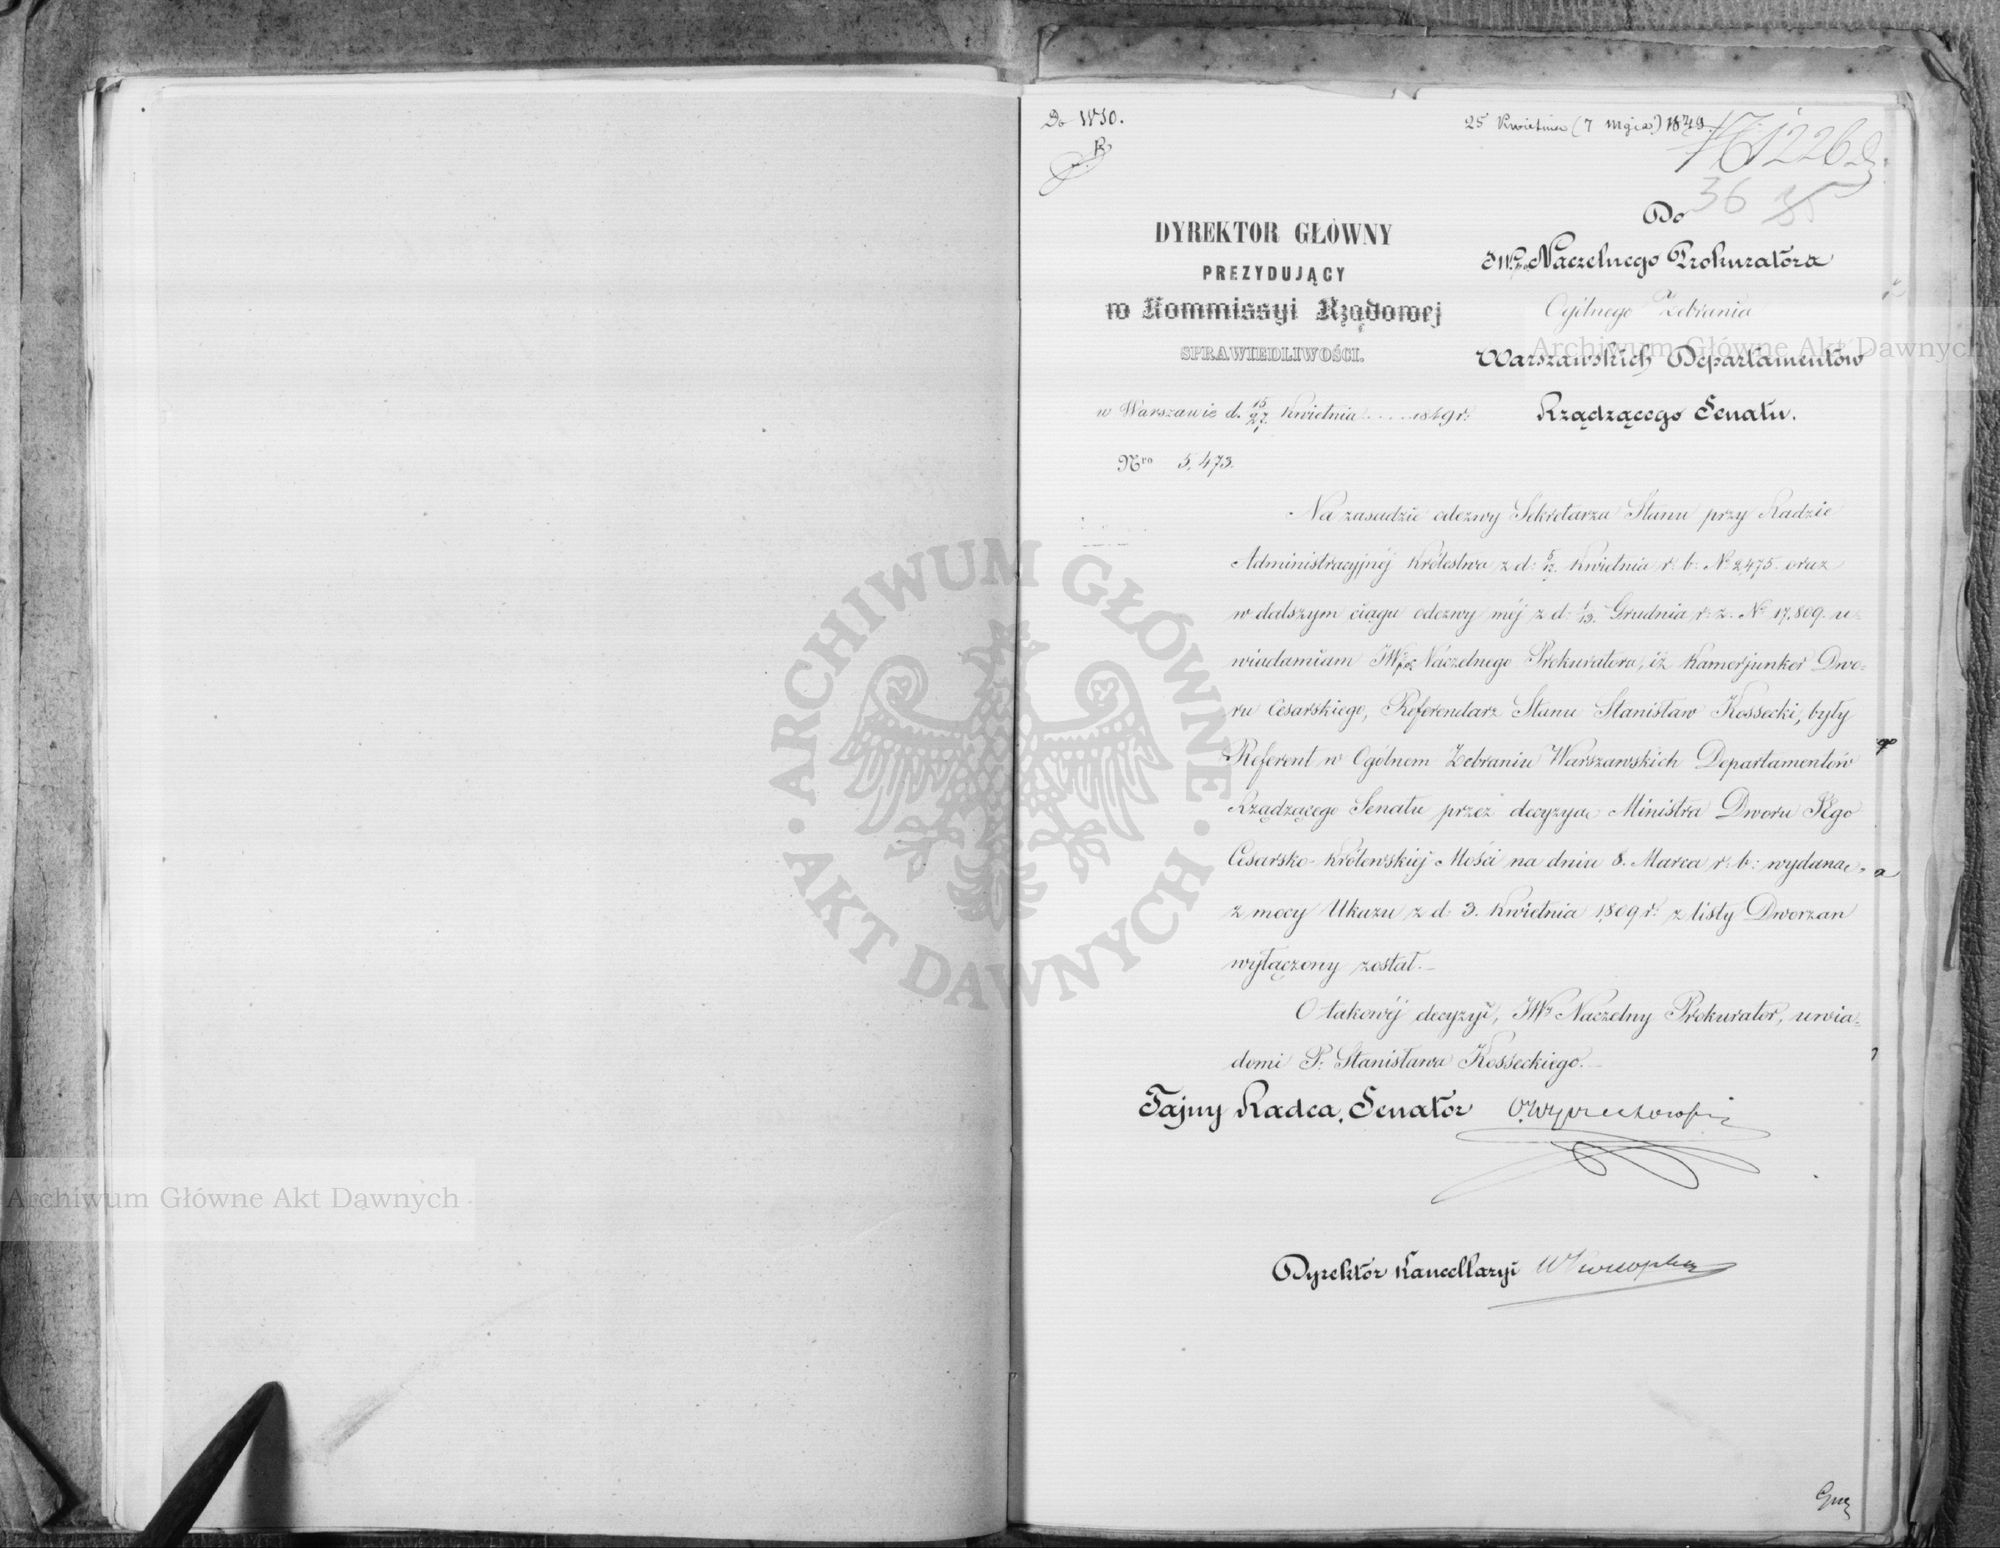 Do W30.
25 Kwietnia (7 Maja) 1849.
1226
36
Do
DYREKTOR GŁÓWNY
PREZYDUJĄCY
w Kommissyi Rządowej
SPRAWIEDLIWOŚCI.
JWgo Naczelnego Prokuratora
Ogólnego Zebrania
Warszawskich Departamentów
Rządzącego Senatu.
w Warszawie d. 15/27 Kwietnia 1849 r.
Nro 5,473.
Na zasadzie odezwy Sekretarza Stanu przy Radzie
Administracyjnéj Królestwa z d: 5/17 Kwietnia r. b: No 2475. oraz
w dalszym ciągu odezwy méj z d: 1/13. Grudnia r: z. No 17,809. u-
wiadamiam JWgo Naczelnego Prokuratora, iż Kamerjunker Dwo-
ru Cesarskiego, Referendarz Stanu Stanisław Kossecki, były
Referent w Ogólnem Zebraniu Warszawskich Departamentów
Rządzącego Senatu przez decyzyą Ministra Dworu Jego
Cesarsko-Królewskiej Mości na dniu 8. Marca r: b: wydaną,
z mocy Ukazu z d: 3. Kwietnia 1809 r: z listy Dworzan
wyłączony został.
O takowéj decyzyi, JWy Naczelny Prokurator, uwia-
domi P. Stanisława Kosseckiego.
Tajny Radca, Senator
Dyrektór Kancellaryi
ARCHIWUM GŁÓWNE
AKT DAWNYCH
Archiwum Główne Akt Dawnych
Archiwum Główne Akt Dawnych